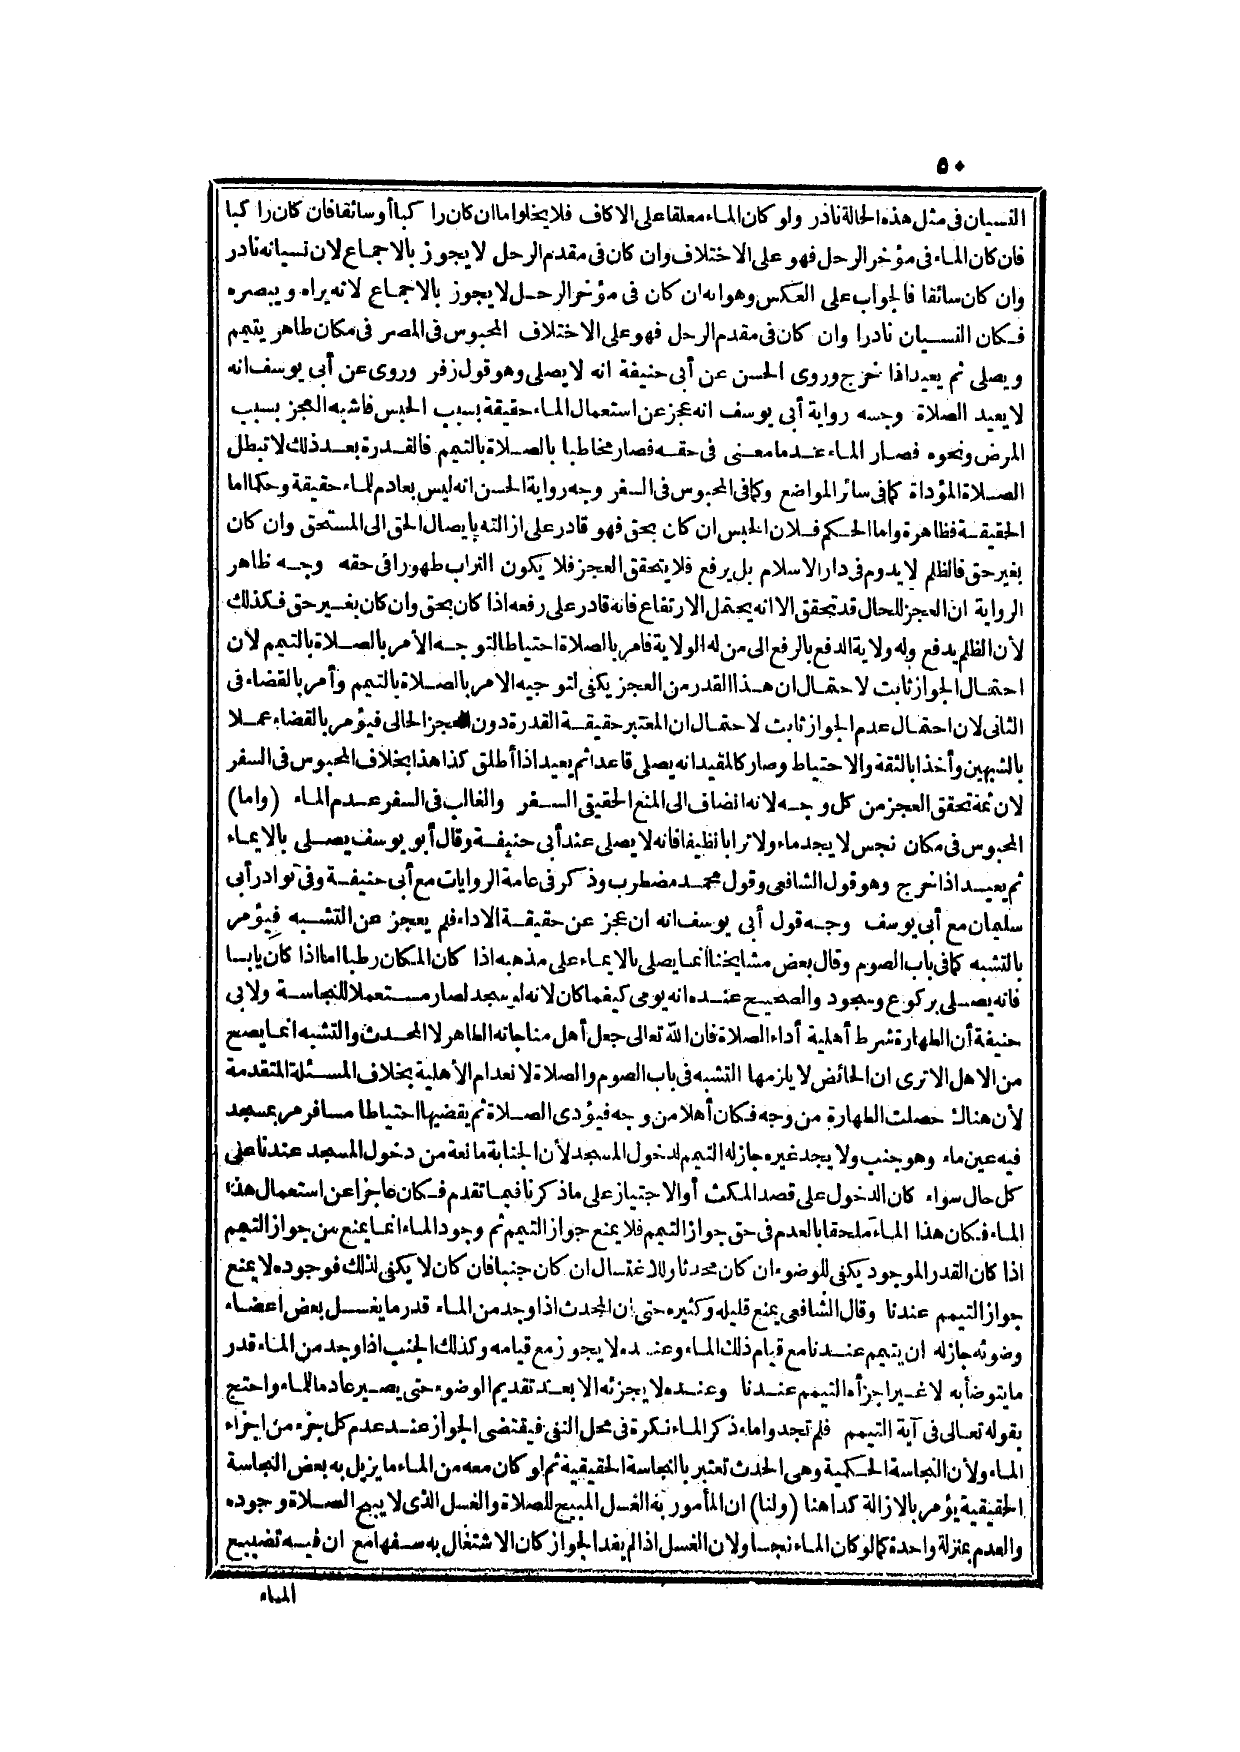 ٥٠
النسيان فى مثل هذه الحالة نادر ولو كان الماء معلقا على الاكاف فلا يخلوا ما ان كان را كبا أو سائقا فان كان را كبا
فان كان الماء فى مؤخر الرحل فهو على الاختلاف وان كان فى مقدم الرحل لا يجوز بالاجماع لان نسيانه نادر
وان كان سائقا فالجواب على العكس وهو انه ان كان فى مؤخر الرحل لا يجوز بالاجماع لانه يراه و يبصره
فكان النسيان نادرا وان كان فى مقدم الرحل فهو على الاختلاف المحبوس فى المصر فى مكان طاهر يتيمم
و يصلى ثم يعيد اذا خرج وروى الحسن عن أبى حنيفة انه لا يصلى وهو قول زفر وروى عن أبى يوسف انه
لا يعيد الصلاة وجه رواية أبى يوسف انه عجز عن استعمال الماء حقيقة بسبب الحبس فاشبه العجز بسبب
المرض ونحوه فصار الماء عدما معنى فى حقه فصار مخاطبا بالصلاة بالتيمم فالقدرة بعد ذلك لا تبطل
الصلاة المؤداة كما فى سائر المواضع وكما فى المحبوس فى السفر وجه رواية الحسن انه ليس بعادم للماء حقيقة وحكما اما
الحقيقة فظاهرة واما الحكم فلان الحبس ان كان بحق فهو قادر على ازالته بايصال الحق الى المستحق وان كان
بغير حق فالظلم لا يدوم فى دار الاسلام بل يرفع فلا يتحقق العجز فلا يكون التراب طهورا فى حقه وجه ظاهر
الرواية ان العجز للحال قد تحقق الا انه يحتمل الارتفاع فانه قادر على رفعه اذا كان بحق وان كان بغير حق فكذلك
لأن الظلم يدفع وله ولاية الدفع بالرفع الى من له الولاية فامر بالصلاة احتياطا لتوجه الأمر بالصلاة بالتيمم لأن
احتمال الجواز ثابت لاحتمال ان هذا القدر من العجز يكفى لتوجيه الامر بالصلاة بالتيمم وأمر بالقضاء فى
الثانى لان احتمال عدم الجواز ثابت لاحتمال ان المعتبر حقيقة القدرة دون العجز الحالى فيؤمر بالقضاء عملا
بالشبهين وأخذا بالثقة والاحتياط وصار كالمقيد انه يصلى قاعدا ثم يعيد اذا أطلق كذا هذا بخلاف المحبوس فى السفر
لان ثمة تحقق العجز من كل وجه لانه انضاف الى المنع الحقيقى السفر والغالب فى السفر عدم الماء (واما)
المحبوس فى مكان نجس لا يجد ماء ولا ترابا نظيفا فانه لا يصلى عند أبى حنيفة وقال أبو يوسف يصلى بالايماء
ثم يعيد اذا خرج وهو قول الشافعى وقول محمد مضطرب وذكر فى عامة الروايات مع أبى حنيفة وفى نوادر أبى
سليمان مع أبى يوسف وجه قول أبى يوسف انه ان عجز عن حقيقة الاداء فلم يعجز عن التشبه فيؤمر
بالتشبه كما فى باب الصوم وقال بعض مشايخنا انما يصلى بالايماء على مذهبه اذا كان المكان رطبا اما اذا كان يابسا
فانه يصلى بركوع وسجود والصحيح عنده انه يومى كيفما كان لانه لو سجد لصار مستعملا للنجاسة ولابى
حنيفة أن الطهارة شرط أهلية أداء الصلاة فان الله تعالى جعل أهل مناجاته الطاهر لا المحدث والتشبه انما يصح
من الاهل الا ترى ان الحائض لا يلزمها التشبه فى باب الصوم والصلاة لانعدام الأهلية بخلاف المسئلة المتقدمة
لأن هناك حصلت الطهارة من وجه فكان أهلا من وجه فيؤدى الصلاة ثم يقضيها احتياطا مسافر مر بمسجد
فيه عين ماء وهو جنب ولا يجد غيره جاز له التيمم لدخول المسجد لأن الجنابة مانعة من دخول المسجد عندنا على
كل حال سواء كان الدخول على قصد المكث أو الاجتياز على ما ذكرنا فيما تقدم فكان عاجزا عن استعمال هذا
الماء فكان هذا الماء ملحقا بالعدم فى حق جواز التيمم فلا يمنع جواز التيمم ثم وجود الماء انما يمنع من جواز التيمم
اذا كان القدر الموجود يكفى للوضوء ان كان محدثا وللاغتسال ان كان جنبا فان كان لا يكفى لذلك فوجوده لا يمنع
جواز التيمم عندنا وقال الشافعى يمنع قليله وكثيره حتى ان المحدث اذا وجد من الماء قدر ما يغسل بعض اعضاء
وضوئه جاز له ان يتيمم عندنا مع قيام ذلك الماء وعنده لا يجوز مع قيامه وكذلك الجنب اذا وجد من الماء قدر
ما يتوضأ به لا غير اجزأه التيمم عندنا وعنده لا يجزئه الا بعد تقديم الوضوء حتى يصير عادما للماء واحتج
بقوله تعالى فى آية التيمم فلم تجدوا ماء ذكر الماء نكرة فى محل النفى فيقتضى الجواز عند عدم كل جزء من اجزاء
الماء ولأن النجاسة الحكمية وهى الحدث تعتبر بالنجاسة الحقيقية ثم لو كان معه من الماء ما يزيل به بعض النجاسة
الحقيقية يؤمر بالازالة كذا هنا (ولنا) ان المأمور به الغسل المبيح للصلاة والغسل الذى لا يبيح الصلاة وجوده
والعدم بمنزلة واحدة كما لو كان الماء نجسا ولان الغسل اذا لم يفد الجواز كان الاشتغال به سفها مع ان فيه تضييع
المياه